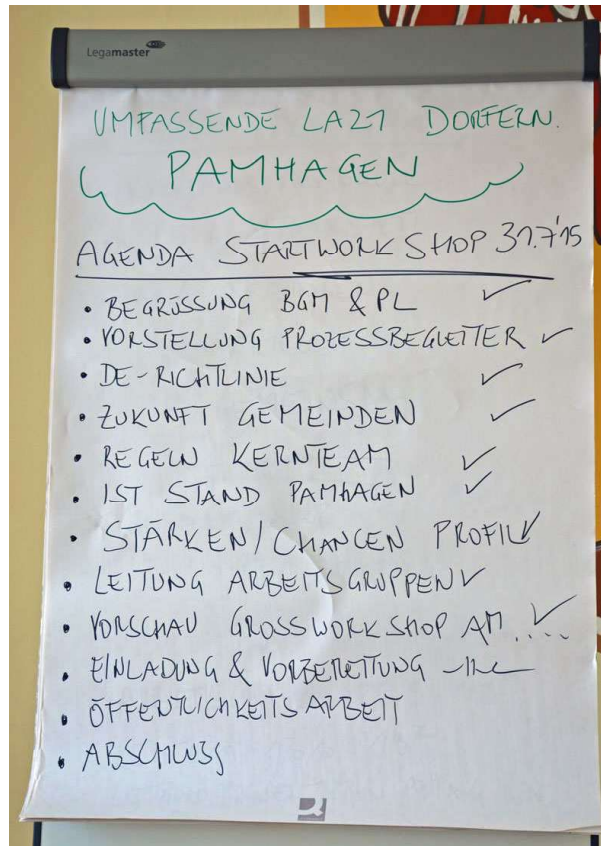 Legamaster
UMFASSENDE LA21 DORFERN.
PAMHAGEN
AGENDA STARTWORKSHOP 31.7'15
• BEGRÜSSUNG BGM & PL ✓
• VORSTELLUNG PROZESSBEGLEITER ✓
• DE-RICHTLINIE ✓
• ZUKUNFT GEMEINDEN ✓
• REGELN KERNTEAM ✓
• IST STAND PAMHAGEN ✓
• STÄRKEN/CHANCEN PROFIL ✓
• LEITUNG ARBEITSGRUPPEN ✓
• VORSCHAU GROSSWORKSHOP AM .... ✓
• EINLADUNG & VORBEREITUNG
• ÖFFENTLICHKEITSARBEIT
• ABSCHLUSS